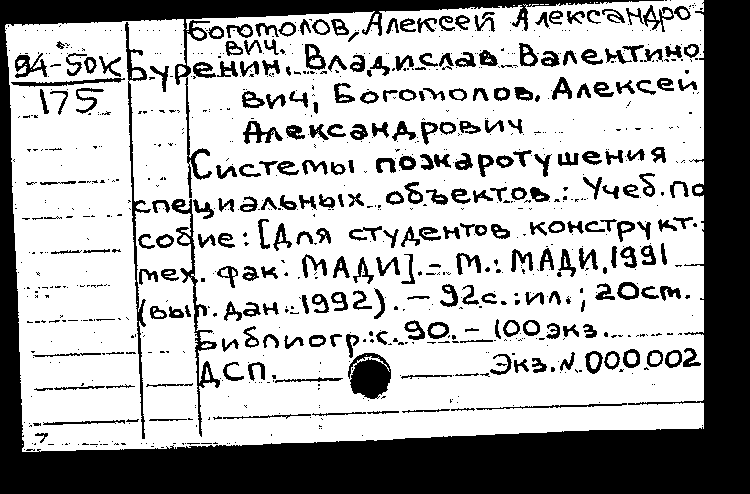 Боготолов, Алексей Александро-
вич.
94-50К Буренин, Владислав Валентино
175 вич; Боготолов, Алексей
Александрович
Системы пожаротушения
специальных объектов: Учеб. по
собие: [Для студентов конструкт.-
мех. фак. МАДИ]. - М.: МАДИ, 1991
(вып. дан. 1992). - 92с.: ил.; 20см.
Библиогр.: с. 90. - 100 экз.
ДСП. Экз. N 000002